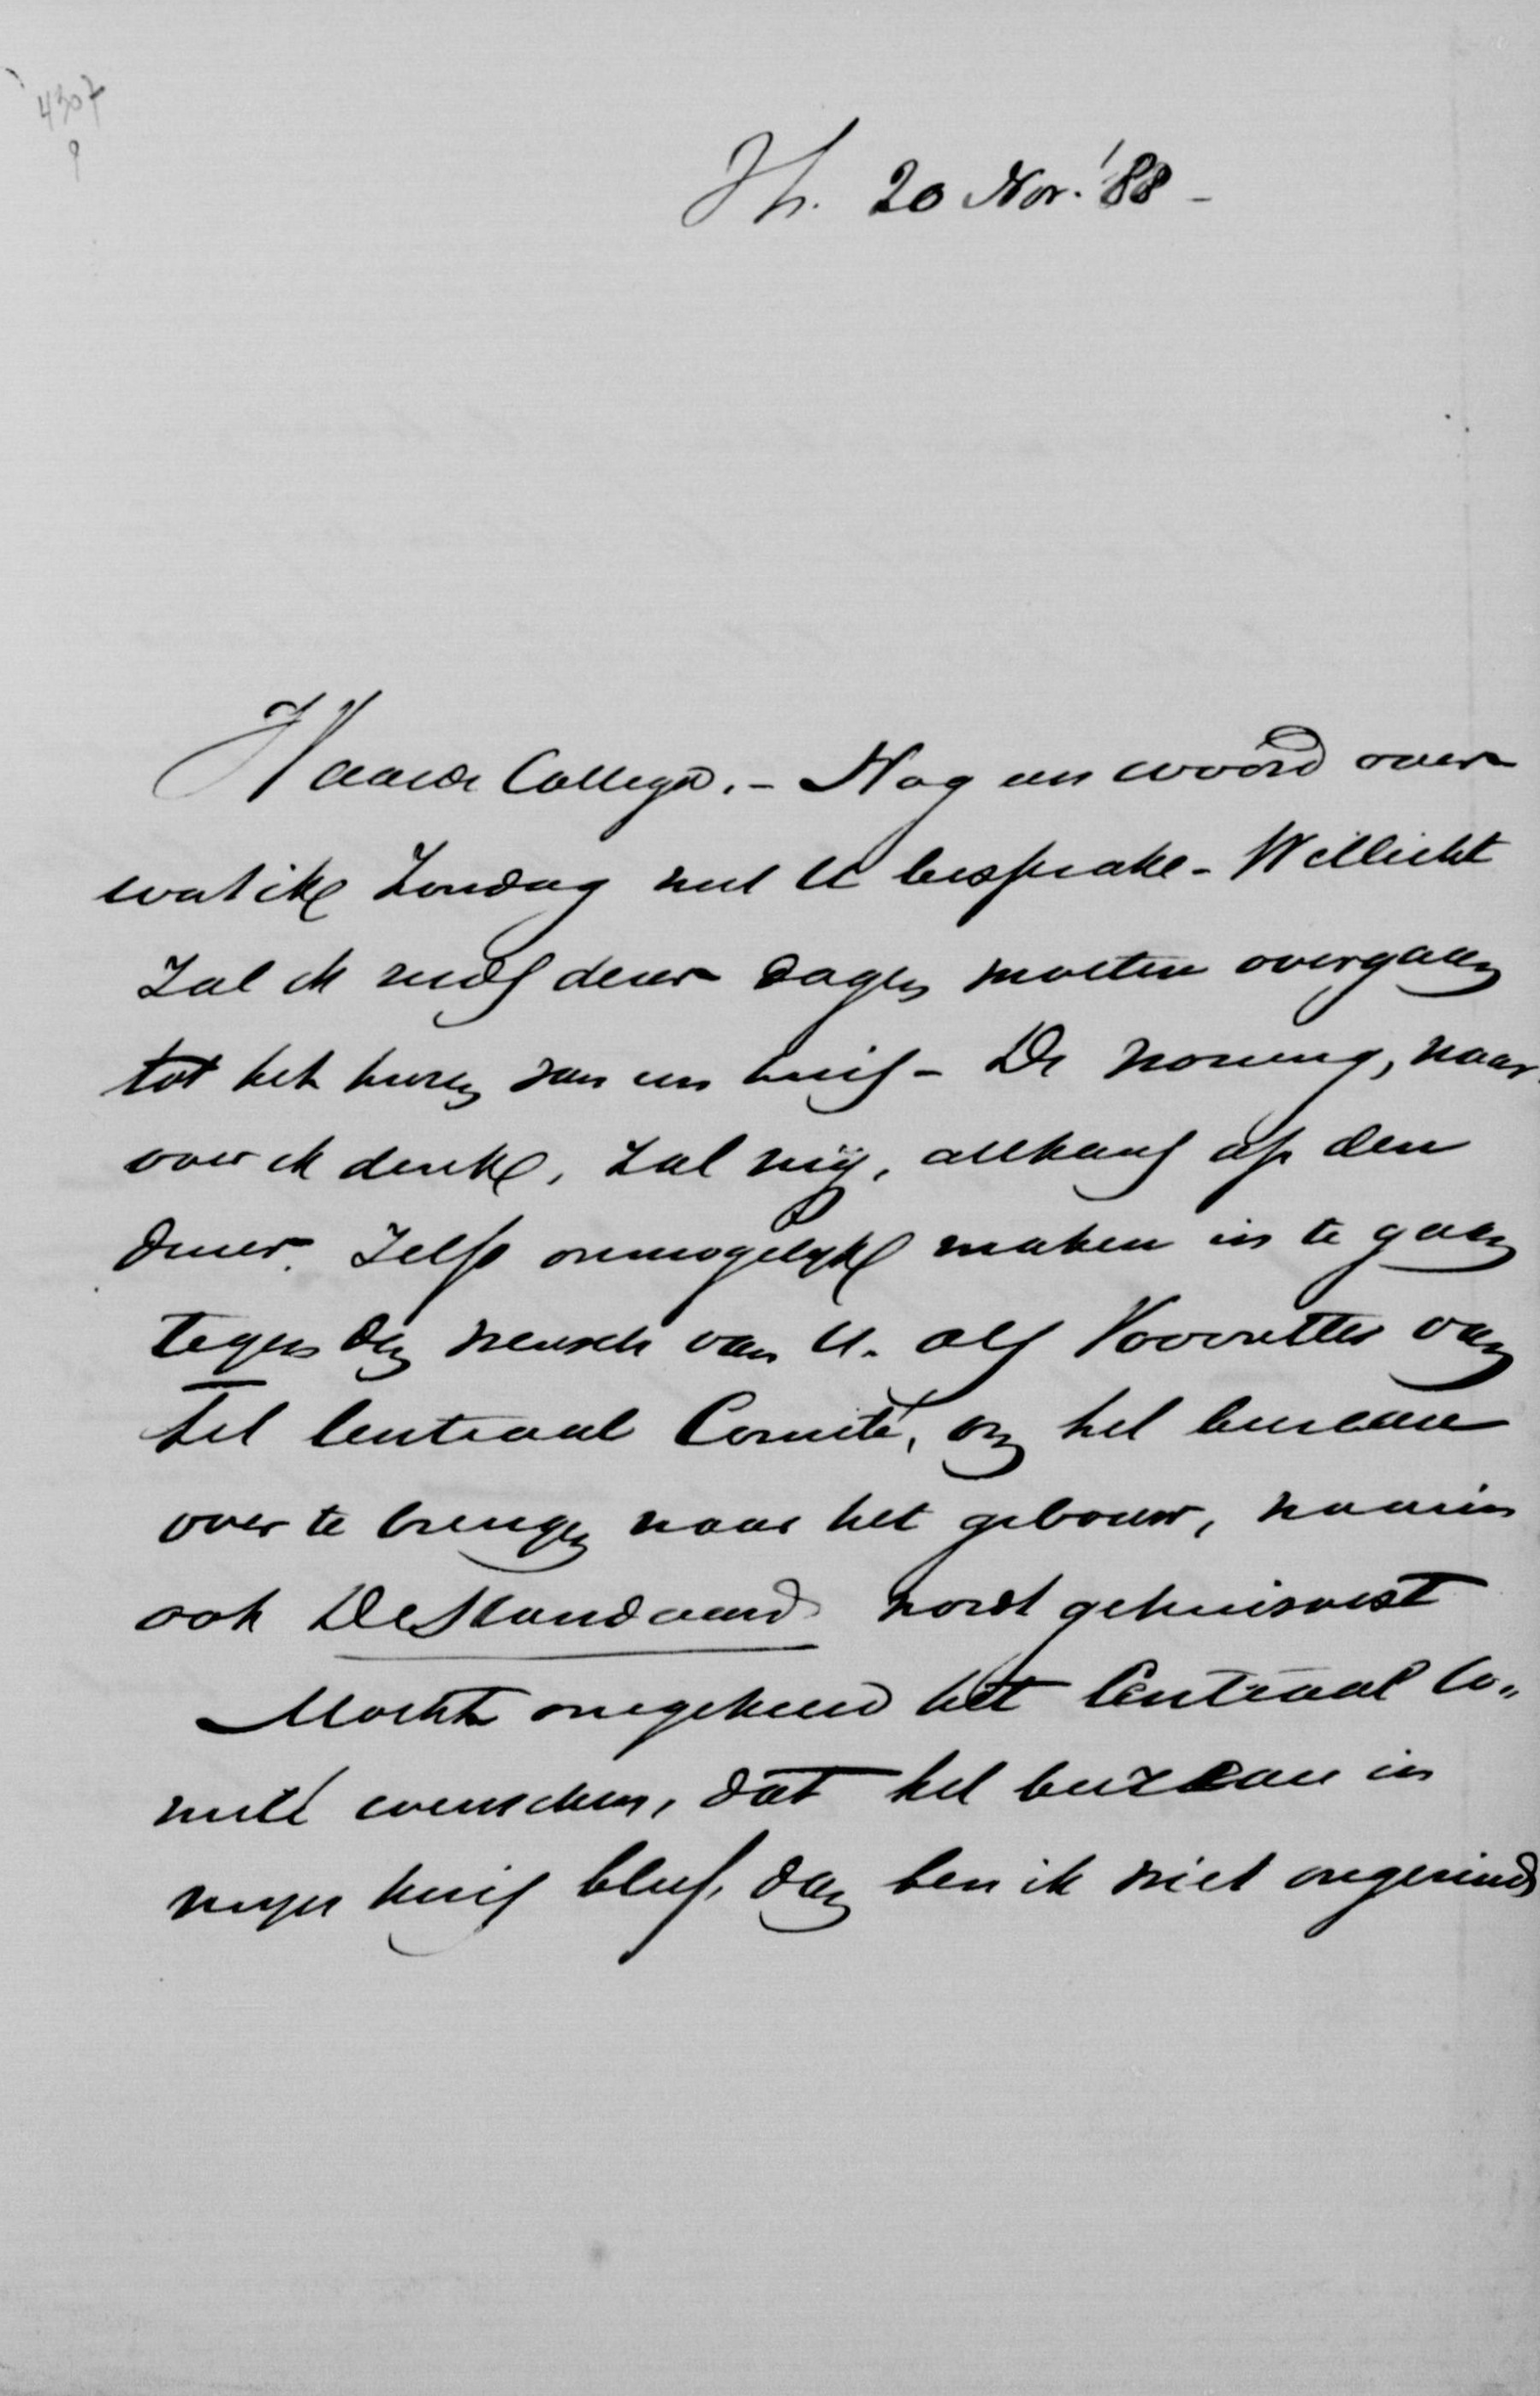 4307
H. 20 Nov. '88 -
Waarde Collega. - Nog een woord over
wat ik Zondag met U besprake - Wellicht
zal ik reeds dezer dagen moeten overgaan
tot het huren van een huis - De woning, waar
over ik denke, zal mij, althans op den
duur zelfs onmogelijk maken in te gaan
tegen den wensch van U. als Voorzitter van
het Centraal Comité, om het bureau
over te brengen naar het gebouw, waarin
ook De Standaard wordt gehuisvest
Mocht omgekeerd het Centraal Co„
mité wenschen, dat het bureau in
mijn huis bleef, dan ben ik niet ongezind